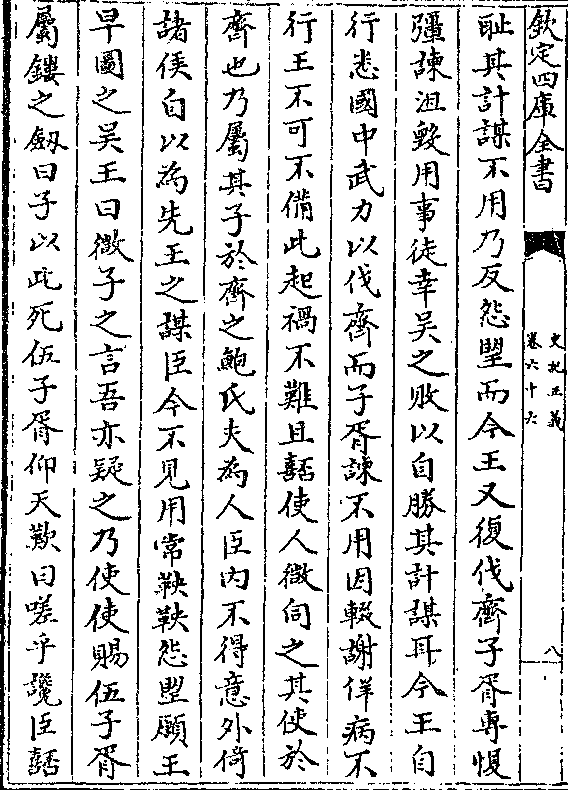 欽定四庫全書
史記正義
卷六十六
八
耻其計謀不用乃反怨望而今王又復伐齊子胥專愎
彊諫沮毀用事徒幸吳之敗以自勝其計謀耳今王自
行悉國中武力以伐齊而子胥諫不用因輟謝佯病不
行王不可不備此起禍不難且嚭使人微伺之其使於
齊也乃屬其子於齊之鮑氏夫為人臣内不得意外倚
諸侯自以為先王之謀臣今不見用常鞅鞅怨望願王
早圖之吳王曰微子之言吾亦疑之乃使使賜伍子胥
屬鏤之劒曰子以此死伍子胥仰天歎曰嗟乎讒臣嚭